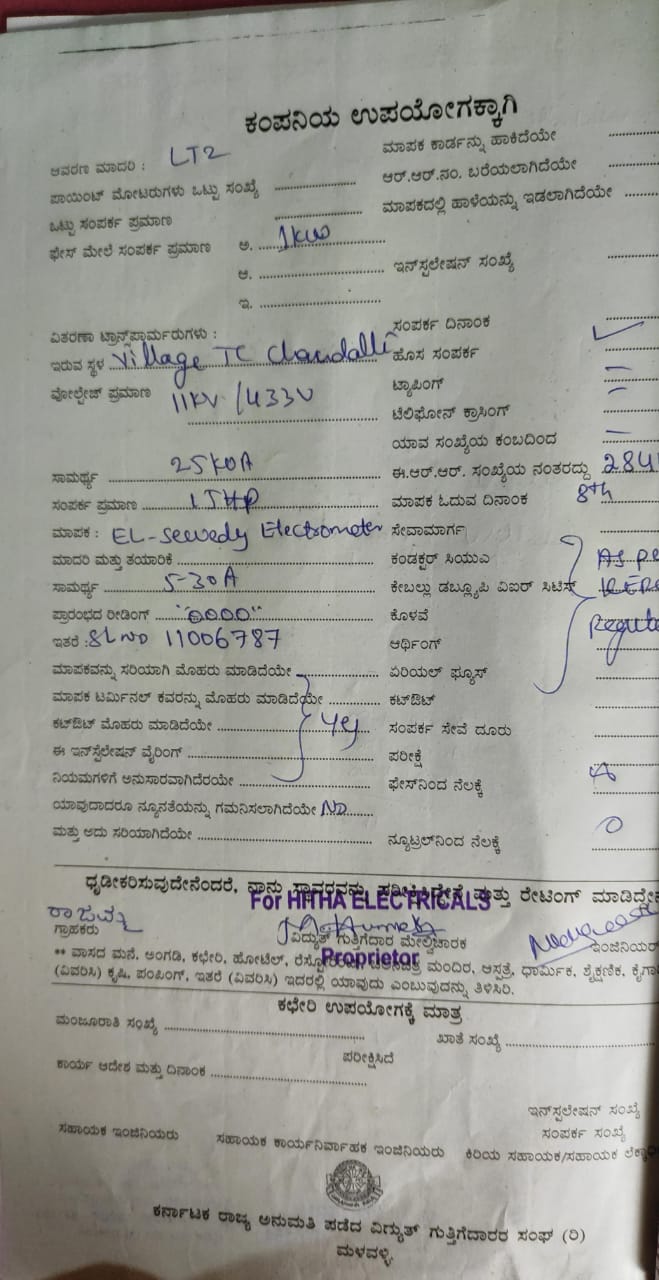 ಕಂಪನಿಯ ಉಪಯೋಗಕ್ಕಾಗಿ
ಆವರಣ ಮಾದರಿ : LT2
ಮಾಪಕ ಕಾರ್ಡನ್ನು ಹಾಕಿದೆಯೇ
ಪಾಯಿಂಟ್ ಮೋಟರುಗಳು ಒಟ್ಟು ಸಂಖ್ಯೆ
ಆರ್.ಆರ್.ನಂ. ಬರೆಯಲಾಗಿದೆಯೇ
ಒಟ್ಟು ಸಂಪರ್ಕ ಪ್ರಮಾಣ
ಮಾಪಕದಲ್ಲಿ ಹಾಳೆಯನ್ನು ಇಡಲಾಗಿದೆಯೇ
ಫೇಸ್ ಮೇಲೆ ಸಂಪರ್ಕ ಪ್ರಮಾಣ ಅ. 1kw
ಆ.
ಇನ್‌ಸ್ಪಲೇಷನ್ ಸಂಖ್ಯೆ
ಇ.
ವಿತರಣಾ ಟ್ರಾನ್ಸ್‌ಫಾರ್ಮರುಗಳು :
ಸಂಪರ್ಕ ದಿನಾಂಕ
ಇರುವ ಸ್ಥಳ Village TC
ಹೊಸ ಸಂಪರ್ಕ ✓
ವೋಲ್ಟೇಜ್ ಪ್ರಮಾಣ 11KV /433V
ಟ್ಯಾಪಿಂಗ್ –
ಟೆಲಿಫೋನ್ ಕ್ರಾಸಿಂಗ್ –
ಯಾವ ಸಂಖ್ಯೆಯ ಕಂಬದಿಂದ –
ಸಾಮರ್ಥ್ಯ 25KVA
ಈ.ಆರ್.ಆರ್. ಸಂಖ್ಯೆಯ ನಂತರದ್ದು 284
ಸಂಪರ್ಕ ಪ್ರಮಾಣ 15HP
ಮಾಪಕ ಓದುವ ದಿನಾಂಕ 8th
ಮಾಪಕ : EL-Sewedy Electrometer
ಸೇವಾಮಾರ್ಗ
ಮಾದರಿ ಮತ್ತು ತಯಾರಿಕೆ
ಕಂಡಕ್ಟರ್ ಸಿಯುಎ As pe
ಸಾಮರ್ಥ್ಯ 5-30A
ಕೇಬಲ್ಲು ಡಬ್ಲ್ಯೂಪಿ ವಿಐರ್ ಸಿಟಿಸ್ KER
ಪ್ರಾರಂಭದ ರೀಡಿಂಗ್ "0000"
ಕೊಳವೆ
ಇತರೆ : SL NO 11006787
ಆರ್ಥಿಂಗ್
ಮಾಪಕವನ್ನು ಸರಿಯಾಗಿ ಮೊಹರು ಮಾಡಿದೆಯೇ
ಏರಿಯಲ್ ಫ್ಯೂಸ್
ಮಾಪಕ ಟರ್ಮಿನಲ್ ಕವರನ್ನು ಮೊಹರು ಮಾಡಿದೆಯೇ
ಕಟ್‌ಔಟ್
ಕಟ್‌ಔಟ್ ಮೊಹರು ಮಾಡಿದೆಯೇ yes
ಸಂಪರ್ಕ ಸೇವೆ ದೂರು
ಈ ಇನ್‌ಸ್ಪೆಲೇಷನ್ ವೈರಿಂಗ್
ಪರೀಕ್ಷೆ
ನಿಯಮಗಳಿಗೆ ಅನುಸಾರವಾಗಿದೆರಯೇ
ಫೇಸ್‌ನಿಂದ ನೆಲಕ್ಕೆ
ಯಾವುದಾದರೂ ನ್ಯೂನತೆಯನ್ನು ಗಮನಿಸಲಾಗಿದೆಯೇ NO
ಮತ್ತು ಅದು ಸರಿಯಾಗಿದೆಯೇ
ನ್ಯೂಟ್ರಲ್‌ನಿಂದ ನೆಲಕ್ಕೆ 0
ಧೃಡೀಕರಿಸುವುದೇನೆಂದರೆ, ನಾನು ಸ್ಥಾವರವನ್ನು ಪರೀಕ್ಷಿಸಿದ್ದೇನೆ ಮತ್ತು ರೇಟಿಂಗ್ ಮಾಡಿದ್ದೇನೆ
For HITHA ELECTRICALS
ಗ್ರಾಹಕರು
ವಿದ್ಯುತ್ ಗುತ್ತಿಗೆದಾರ ಮೇಲ್ವಿಚಾರಕ
ಇಂಜಿನಿಯರ್
Proprietor
** ವಾಸದ ಮನೆ, ಅಂಗಡಿ, ಕಛೇರಿ, ಹೋಟೆಲ್, ಮಂದಿರ, ಆಸ್ಪತ್ರೆ, ಧಾರ್ಮಿಕ, ಶೈಕ್ಷಣಿಕ, ಕೈಗಾ
(ವಿವರಿಸಿ) ಕೃಷಿ, ಪಂಪಿಂಗ್, ಇತರೆ (ವಿವರಿಸಿ) ಇದರಲ್ಲಿ ಯಾವುದು ಎಂಬುವುದನ್ನು ತಿಳಿಸಿರಿ.
ಕಛೇರಿ ಉಪಯೋಗಕ್ಕೆ ಮಾತ್ರ
ಮಂಜೂರಾತಿ ಸಂಖ್ಯೆ
ಖಾತೆ ಸಂಖ್ಯೆ
ಪರೀಕ್ಷಿಸಿದೆ
ಕಾರ್ಯ ಆದೇಶ ಮತ್ತು ದಿನಾಂಕ
ಇನ್‌ಸ್ಪಲೇಷನ್ ಸಂಖ್ಯೆ
ಸಂಪರ್ಕ ಸಂಖ್ಯೆ
ಸಹಾಯಕ ಇಂಜಿನಿಯರು
ಸಹಾಯಕ ಕಾರ್ಯನಿರ್ವಾಹಕ ಇಂಜಿನಿಯರು
ಕಿರಿಯ ಸಹಾಯಕ/ಸಹಾಯಕ
ಕರ್ನಾಟಕ ರಾಜ್ಯ ಅನುಮತಿ ಪಡೆದ ವಿದ್ಯುತ್ ಗುತ್ತಿಗೆದಾರರ ಸಂಘ (ರಿ)
ಮಳವಳ್ಳಿ